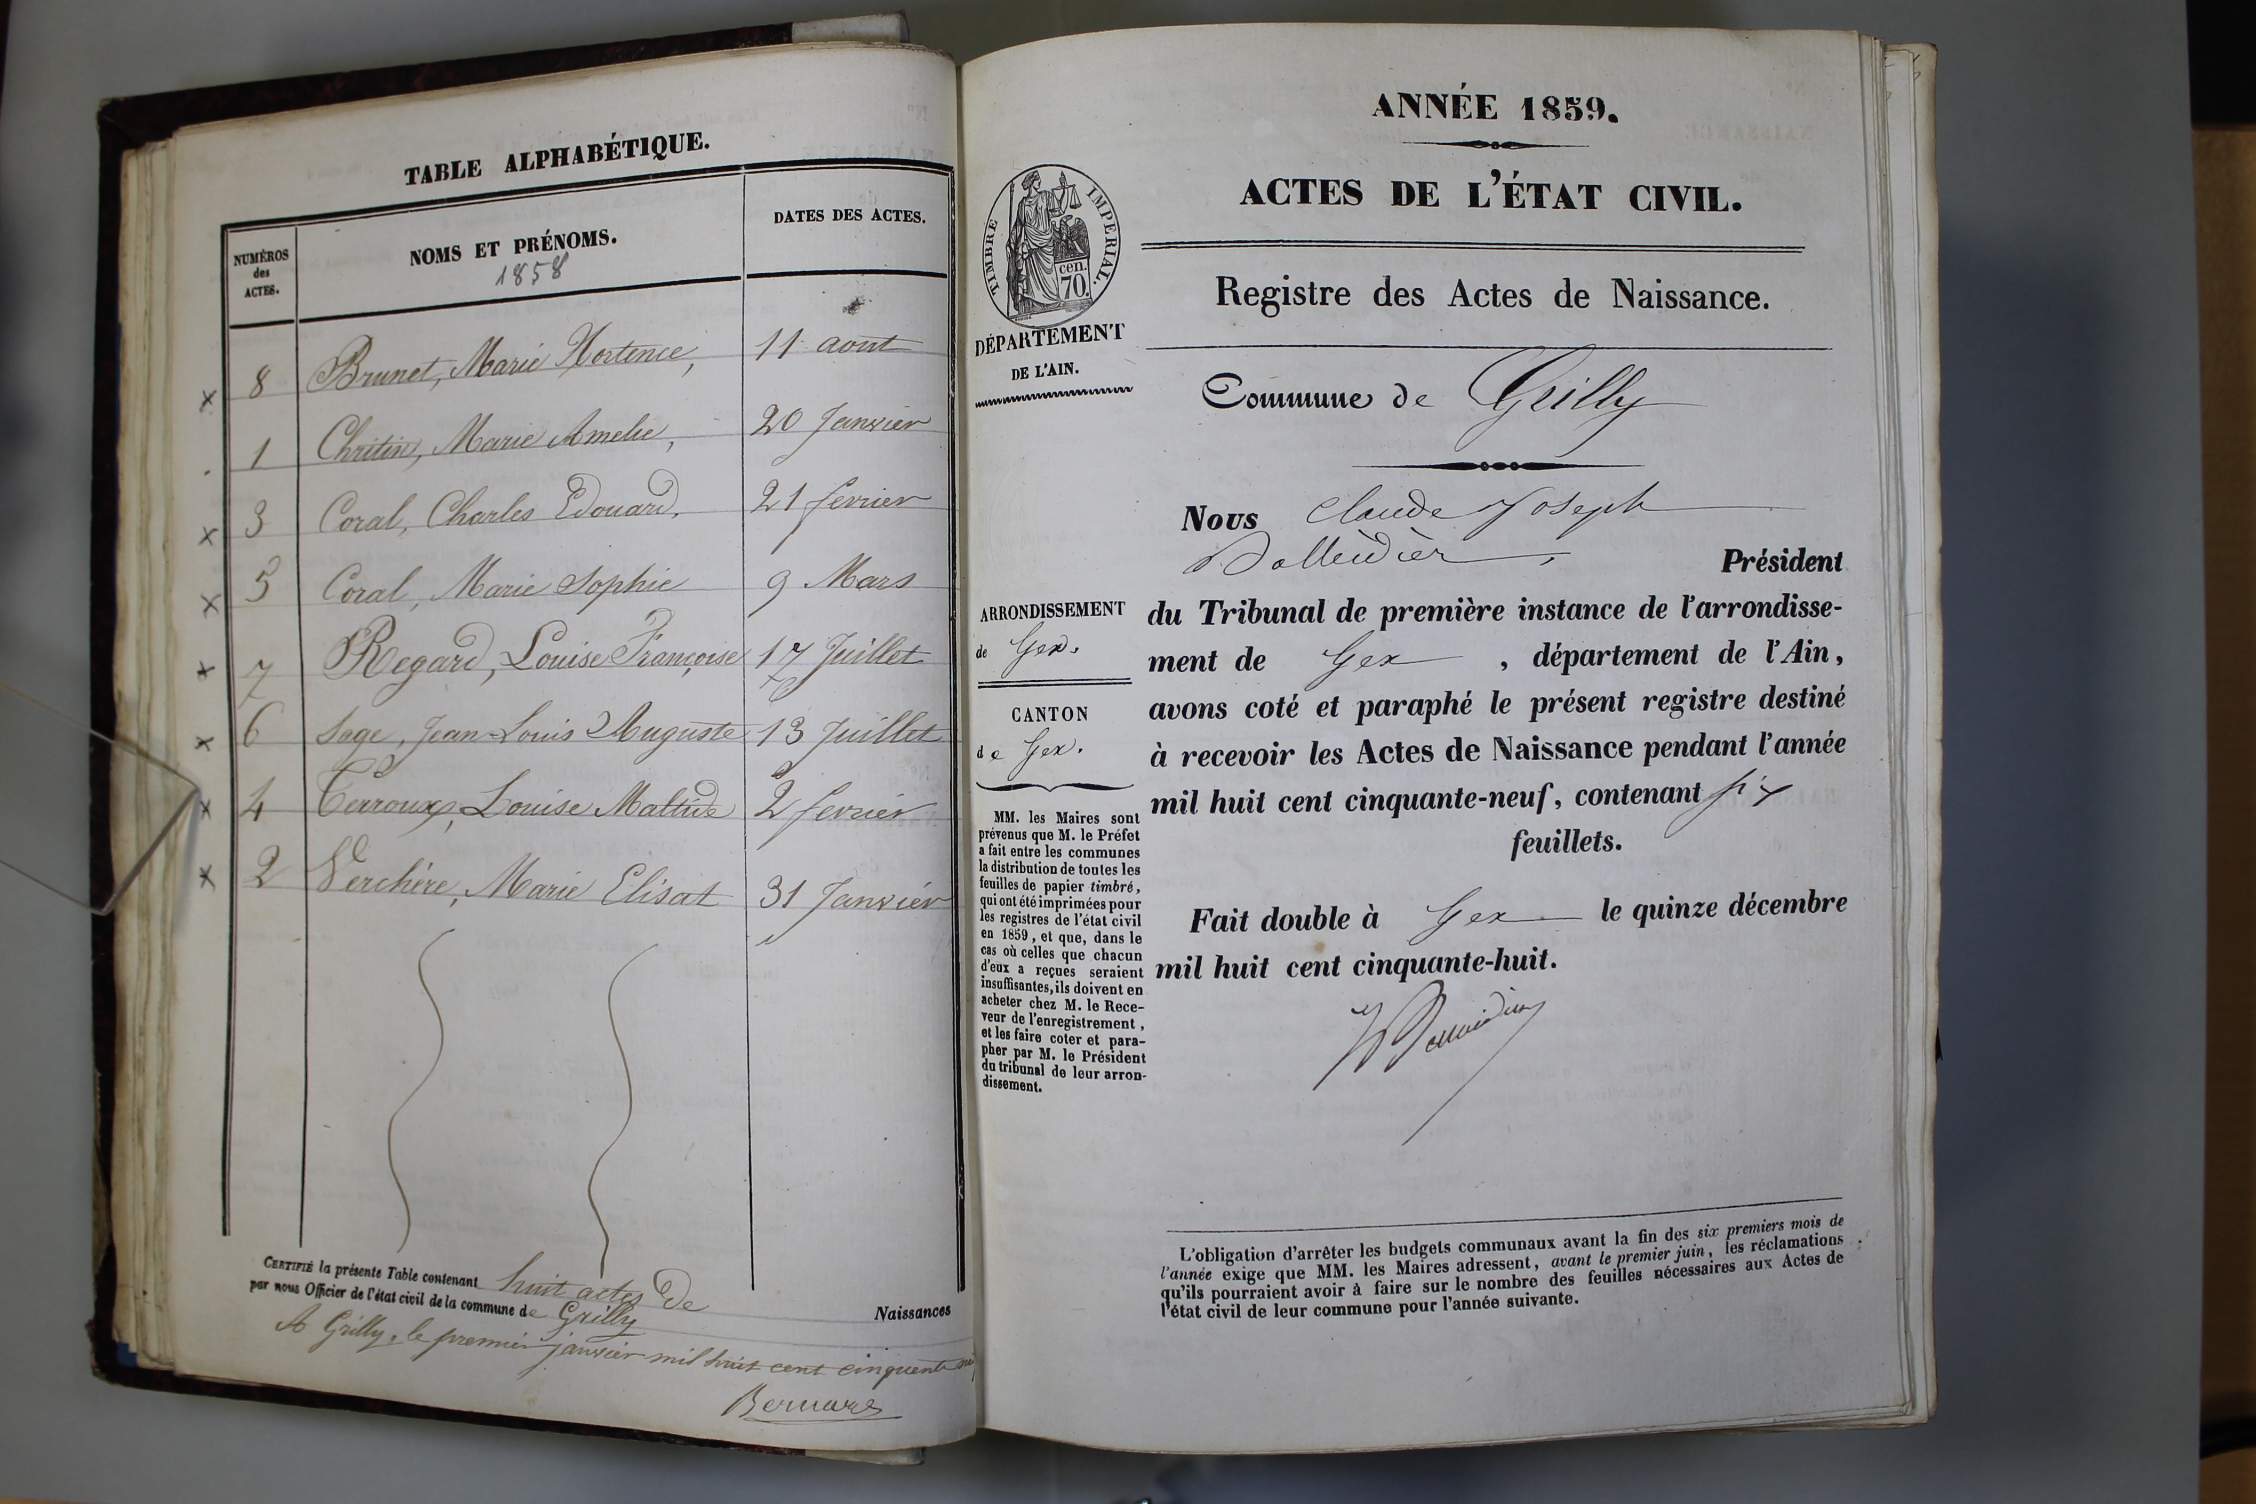 TABLE ALPHABÉTIQUE.
NUMÉROS
des
ACTES.
NOMS ET PRÉNOMS.
1858
DATES DES ACTES.
8 Brunet, Marie Hortence, 11 aout
1 Chritin, Marie Amelie, 20 Janvier
3 Coral, Charles Edouard, 21 fevrier
5 Coral, Marie Sophie 9 Mars
7 Regard, Louise Françoise 17 Juillet
6 Sage, Jean-Louis Auguste 13 Juillet
4 Terroux, Louise Maltide 2 fevrier
2 Verchère, Marie Elisat 31 Janvier
CERTIFIÉ la présente Table contenant huit actes de Naissances
par nous Officier de l'état civil de la commune de Grilly
A Grilly, le premier janvier mil huit cent cinquante
Bernard
ANNÉE 1859.
ACTES DE L'ÉTAT CIVIL.
TIMBRE IMPERIAL.
cen.
70.
DÉPARTEMENT
DE L'AIN.
Registre des Actes de Naissance.
Commune de Grilly
Nous Claude Joseph
Président
du Tribunal de première instance de l'arrondisse-
ment de Gex, département de l'Ain,
avons coté et paraphé le présent registre destiné
à recevoir les Actes de Naissance pendant l'année
mil huit cent cinquante-neuf, contenant six
feuillets.
Fait double à Gex le quinze décembre
mil huit cent cinquante-huit.
ARRONDISSEMENT
de Gex.
CANTON
de Gex.
MM. les Maires sont
prévenus que M. le Préfet
a fait entre les communes
la distribution de toutes les
feuilles de papier timbré,
qui ont été imprimées pour
les registres de l'état civil
en 1859, et que, dans le
cas où celles que chacun
d'eux a reçues seraient
insuffisantes, ils doivent en
acheter chez M. le Rece-
veur de l'enregistrement,
et les faire coter et para-
pher par M. le Président
du tribunal de leur arron-
dissement.
L'obligation d'arrêter les budgets communaux avant la fin des six premiers mois de
l'année exige que MM. les Maires adressent, avant le premier juin, les réclamations
qu'ils pourraient avoir à faire sur le nombre des feuilles nécessaires aux Actes de
l'état civil de leur commune pour l'année suivante.